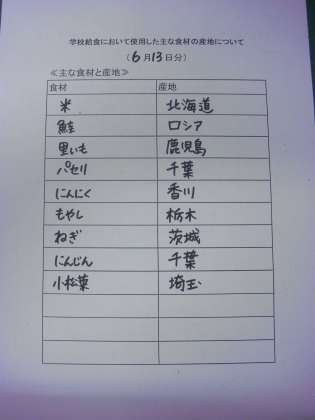 学校給食において使用した主な食材の産地について
(6月13日分)
≪主な食材と産地≫
食材 産地
米 北海道
鮭 ロシア
里いも 鹿児島
パセリ 千葉
にんにく 香川
もやし 栃木
ねぎ 茨城
にんじん 千葉
小松菜 埼玉